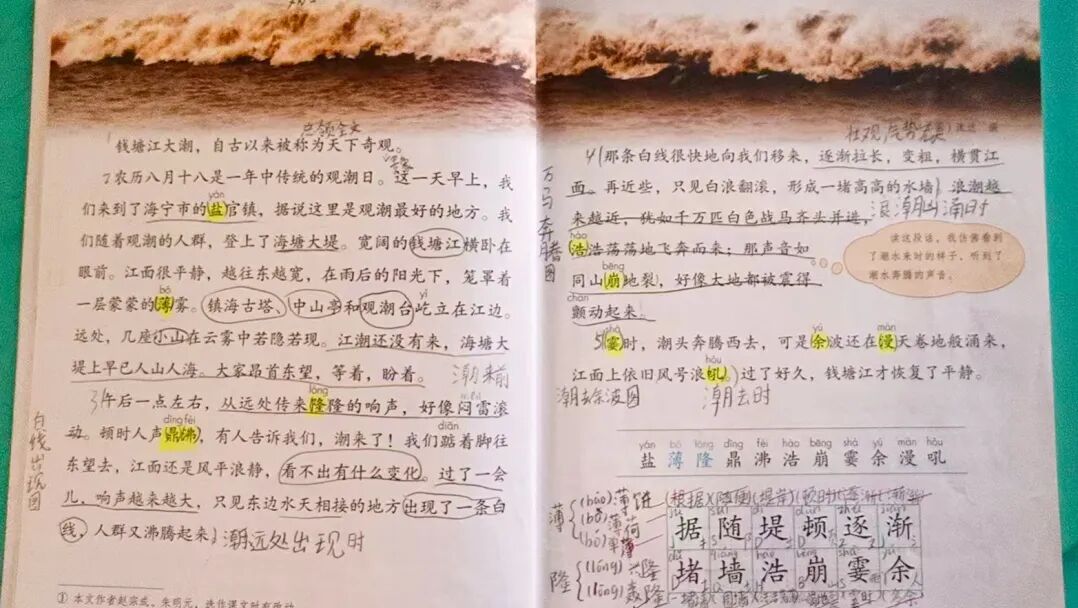 总领全文
钱塘江大潮，自古以来被称为天下奇观。
农历八月十八是一年中传统的观潮日。这一天早上，我
yán
们来到了海宁市的盐官镇，据说这里是观潮最好的地方。我
们随着观潮的人群，登上了海塘大堤。宽阔的钱塘江横卧在
眼前。江面很平静，越往东越宽，在雨后的阳光下，笼罩着
bó yì
一层蒙蒙的薄雾。镇海古塔、中山亭和观潮台屹立在江边。
远处，几座小山在云雾中若隐若现。江潮还没有来，海塘大
堤上早已人山人海。大家昂首东望，等着，盼着。
潮来前
lóng
3午后一点左右，从远处传来隆隆的响声，好像闷雷滚
dǐng fèi diǎn
动。顿时人声鼎沸，有人告诉我们，潮来了！我们踮着脚往
东望去，江面还是风平浪静，看不出有什么变化。过了一会
儿，响声越来越大，只见东边水天相接的地方出现了一条白
线，人群又沸腾起来。
潮远处出现时
白线出现图
① 本文作者赵宗成、朱明元，选作课文时有改动。
壮观
4那条白线很快地向我们移来，逐渐拉长，变粗，横贯江
面。再近些，只见白浪翻滚，形成一堵高高的水墙。浪潮越
来越近，犹如千万匹白色战马齐头并进，
浪潮汹涌时
hào
浩浩荡荡地飞奔而来；那声音如
bēng
同山崩地裂，好像大地都被震得
chàn
颤动起来。
万马奔腾图
读这段话，我仿佛看到
了潮水来时的样子，听到了
潮水奔腾的声音。
shà yú màn
5霎时，潮头奔腾西去，可是余波还在漫天卷地般涌来，
hǒu
江面上依旧风号浪吼。过了好久，钱塘江才恢复了平静。
潮去余波图
潮去时
yán bó lóng dǐng fèi hào bēng shà yú màn hǒu
盐 薄 隆 鼎 沸 浩 崩 霎 余 漫 吼
薄
(báo)薄饼
(bò)薄荷
(bó)
隆
(lóng)兴隆
(lōng)轰隆
(根据)(随便)
据 随 堤 顿 逐 渐
堵 墙 浩 崩 霎 余